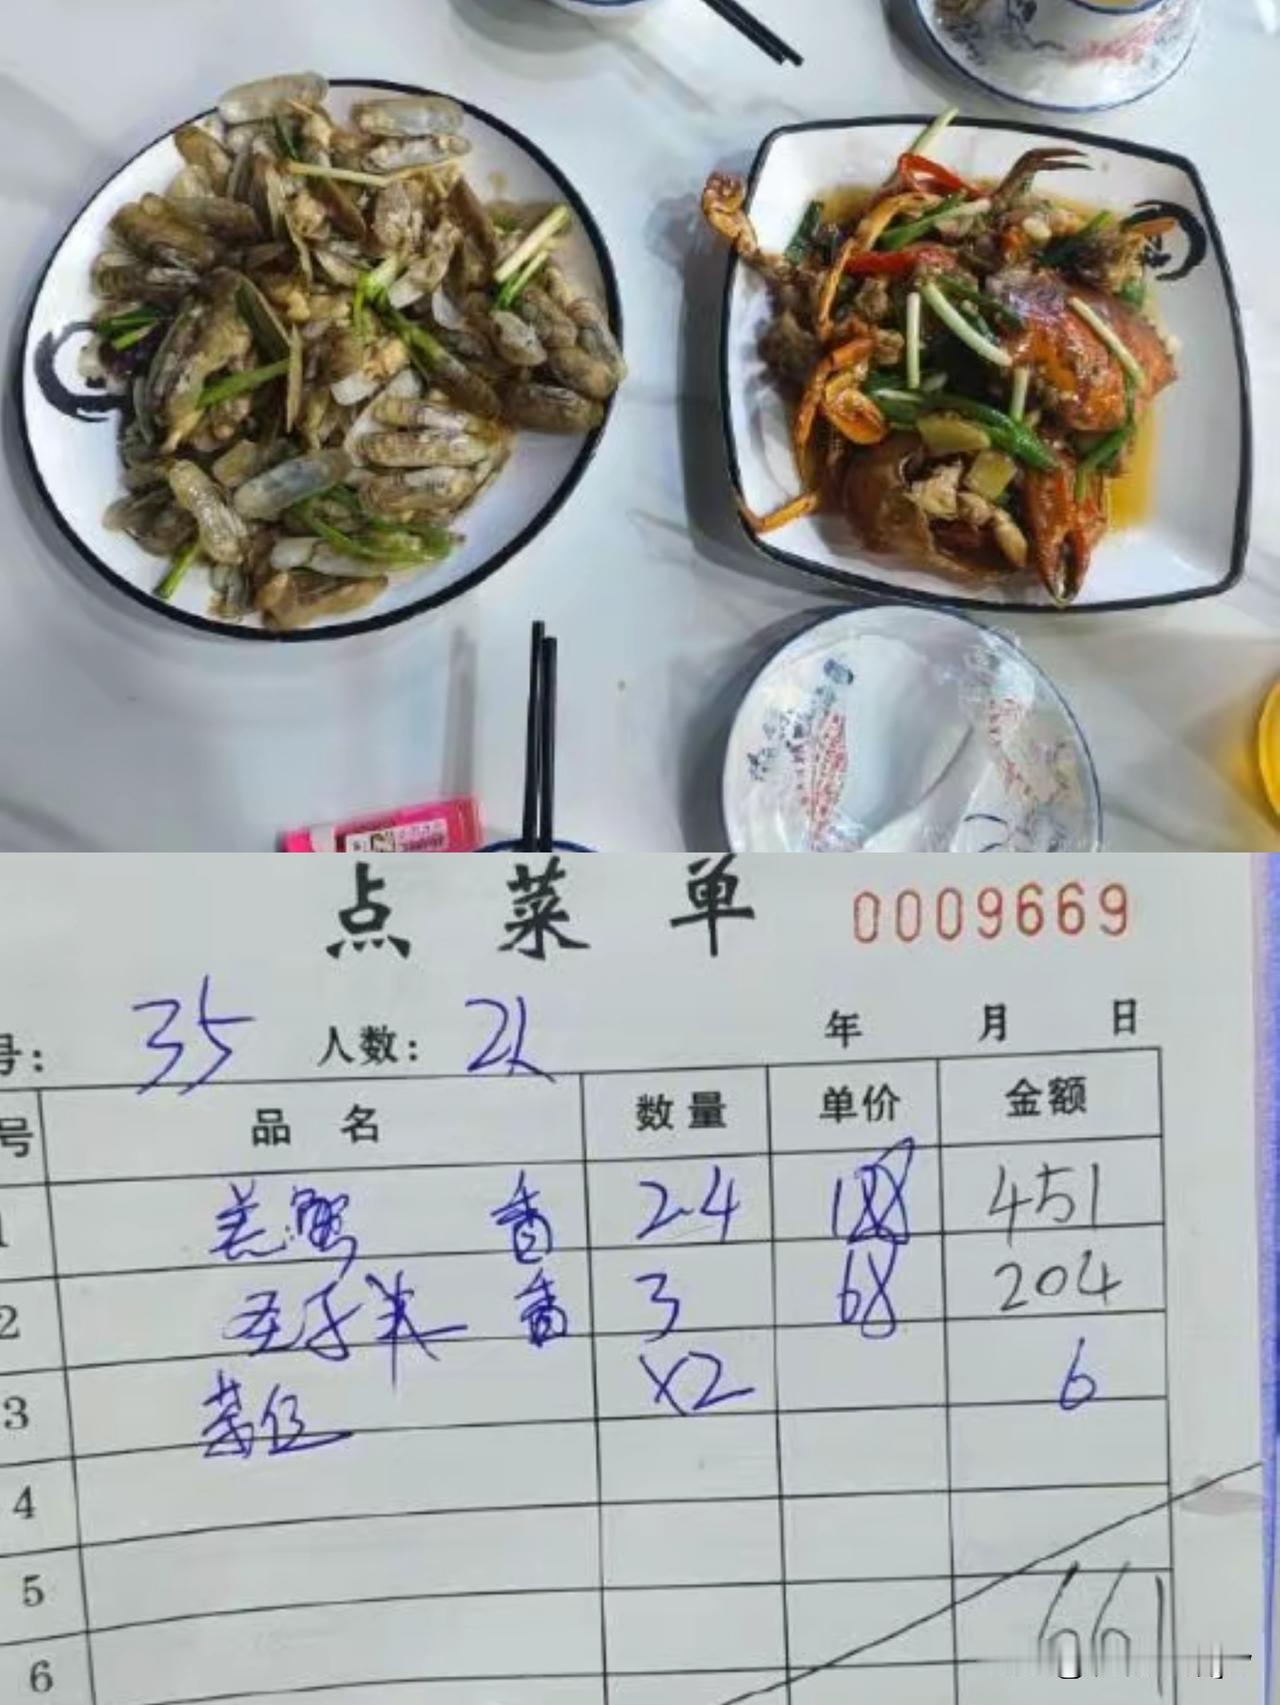 点菜单 0009669
号: 35 人数: 2人 年 月 日
号 品名 数量 单价 金额
1 羔蟹 香 2.4 188 451
2 圣子半 香 3 68 204
3 茶位 x2 6
4
5
6 661